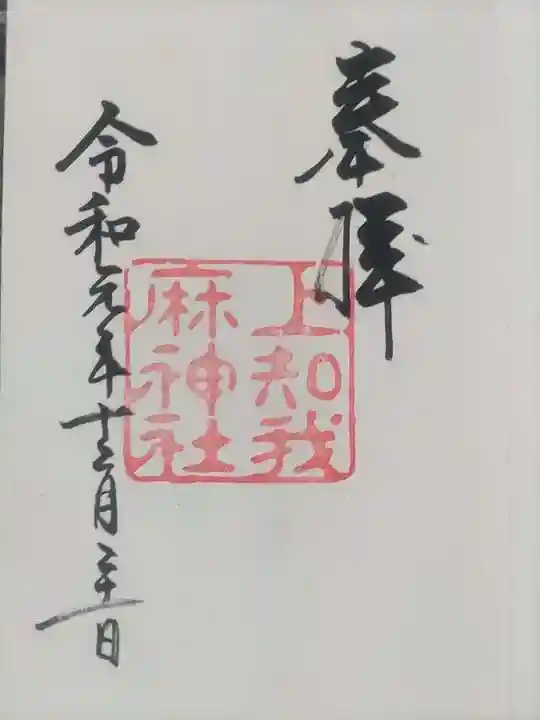 奉拝
上知我
麻神社
令和元年十二月三十一日